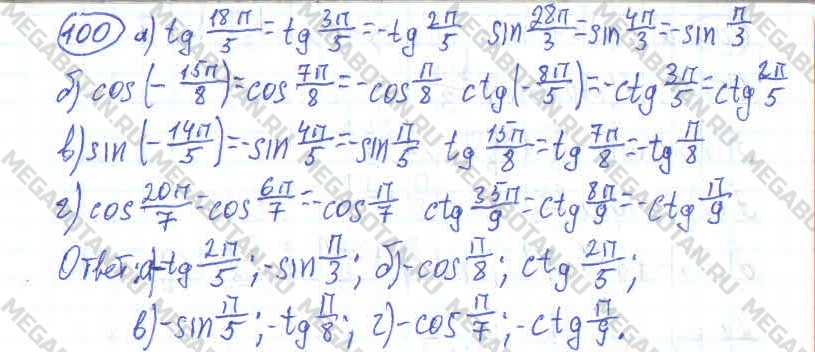 100 а) tg 18π/5 = tg 3π/5 = -tg 2π/5 sin 28π/3 = sin 4π/3 = -sin π/3
б) cos(-15π/8) = cos 7π/8 = -cos π/8 ctg(-8π/5) = -ctg 3π/5 = ctg 2π/5
в) sin(-14π/5) = -sin 4π/5 = -sin π/5 tg 15π/8 = tg 7π/8 = -tg π/8
г) cos 20π/7 = cos 6π/7 = -cos π/7 ctg 35π/9 = ctg 8π/9 = -ctg π/9
Ответ: а) -tg 2π/5; -sin π/3; б) -cos π/8; ctg 2π/5;
в) -sin π/5; -tg π/8; г) -cos π/7; -ctg π/9.
MEGABOTAN.RU